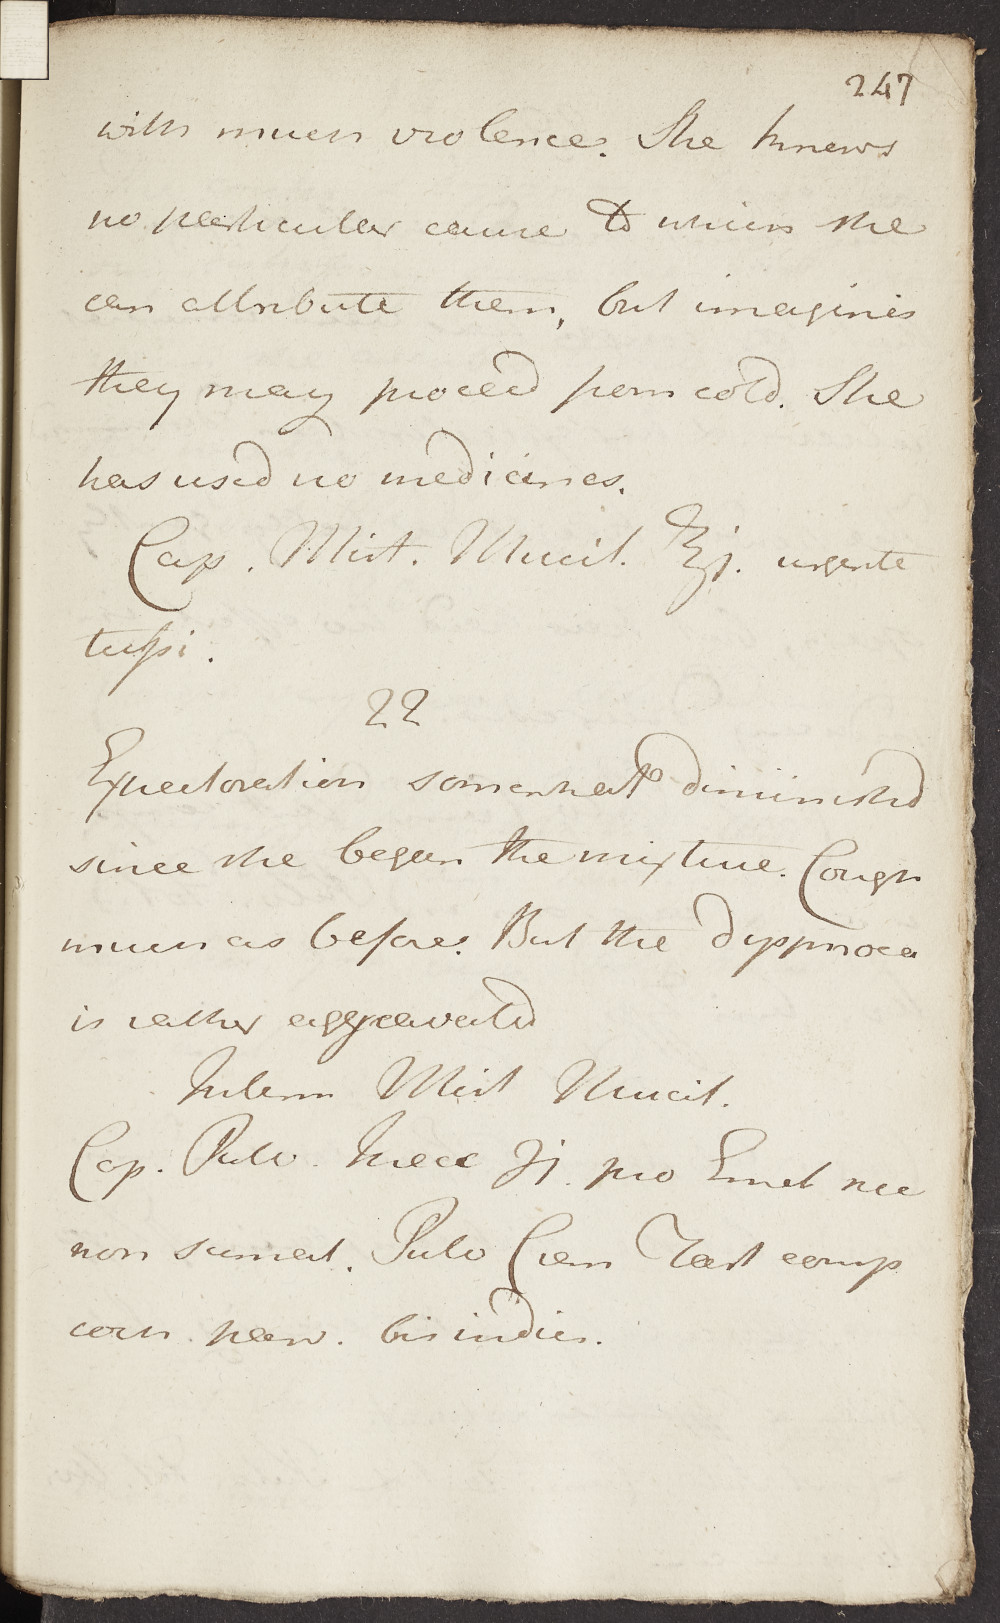 247
with much violence. She knows
no particular cause to which she
can attribute them, but imagines
they may proceed from cold. She
has used no medicines.
Cap. Mist. Mucil. ℥j. urgente
tussi.
22
Expectoration somewhat diminished
since she began the mixture. Cough
much as before. But the dyspnoea
is rather aggravated
Interm Mist Mucil.
Cap. Pulv. Ipecac ʒj. pro Emet nec
non sumat. Pulv Crem Tart comp
coch. parv. bis indies.